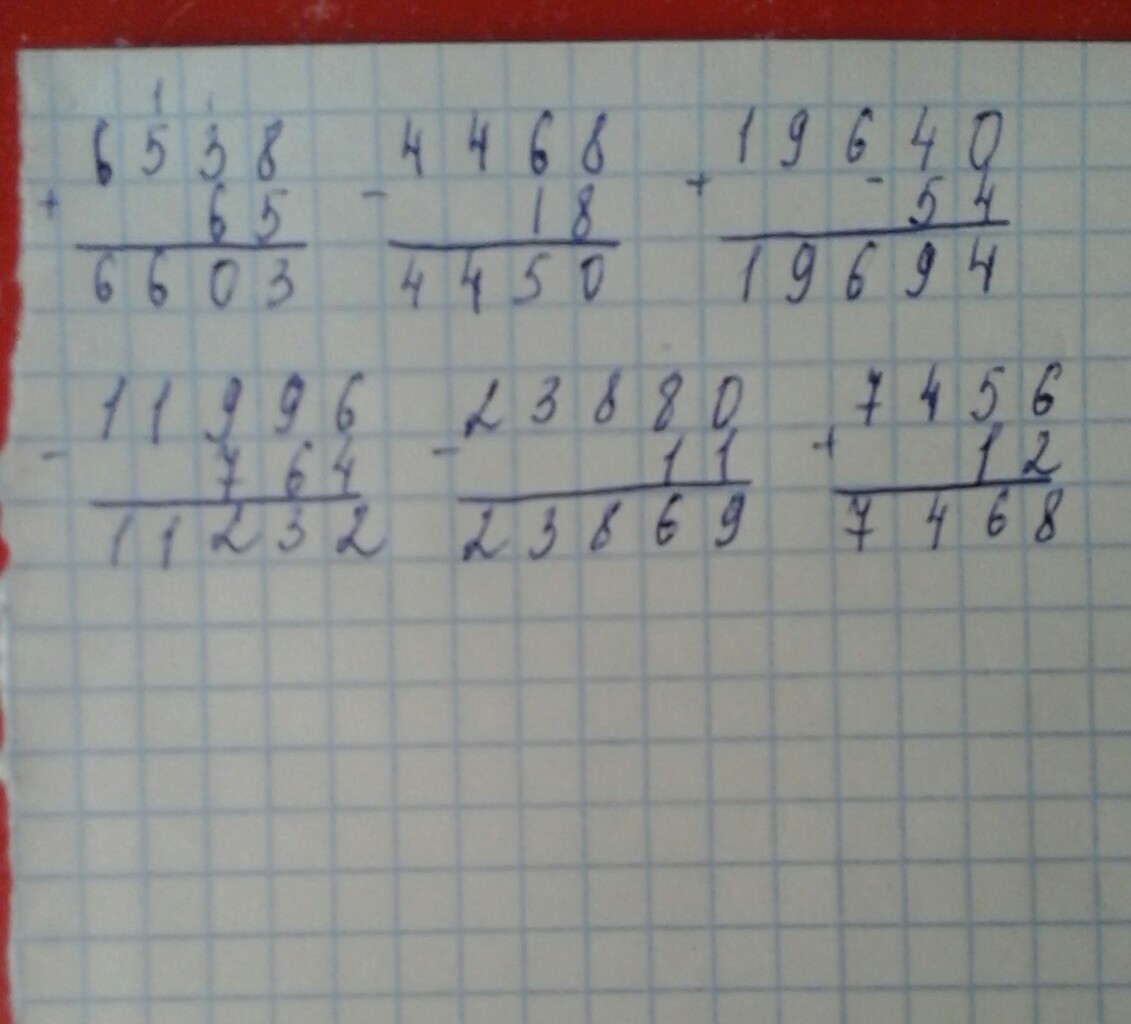 1 1
6538 4468 19640
+ 65 - 18 + - 54
6603 4450 19694
11996 23880 7456
- 764 - 11 + 12
11232 23869 7468